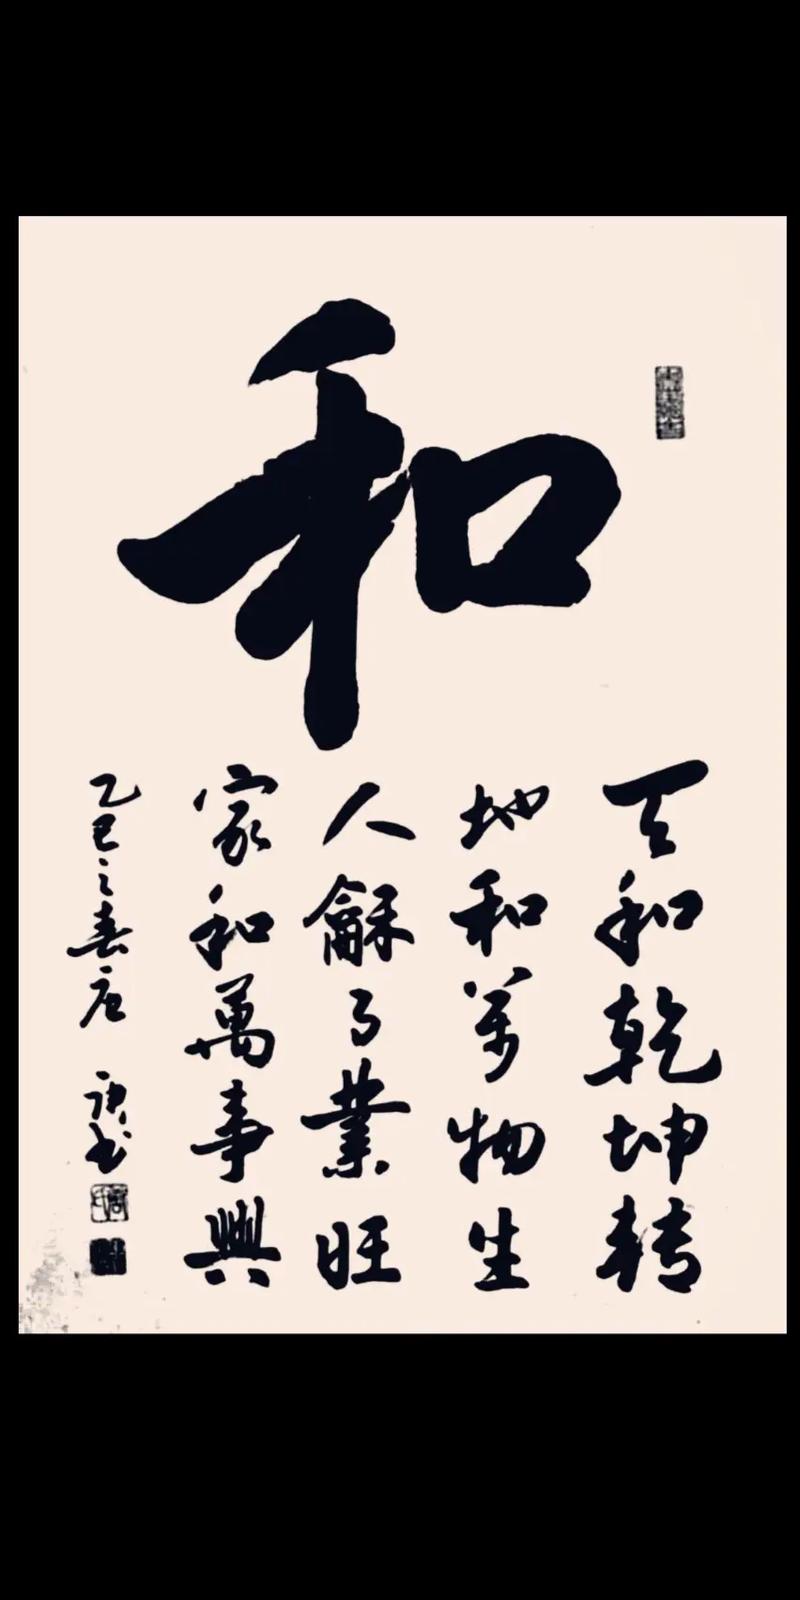 和
天和乾坤转
地和万物生
人龢百業旺
家和萬事興
乙巳之春
书